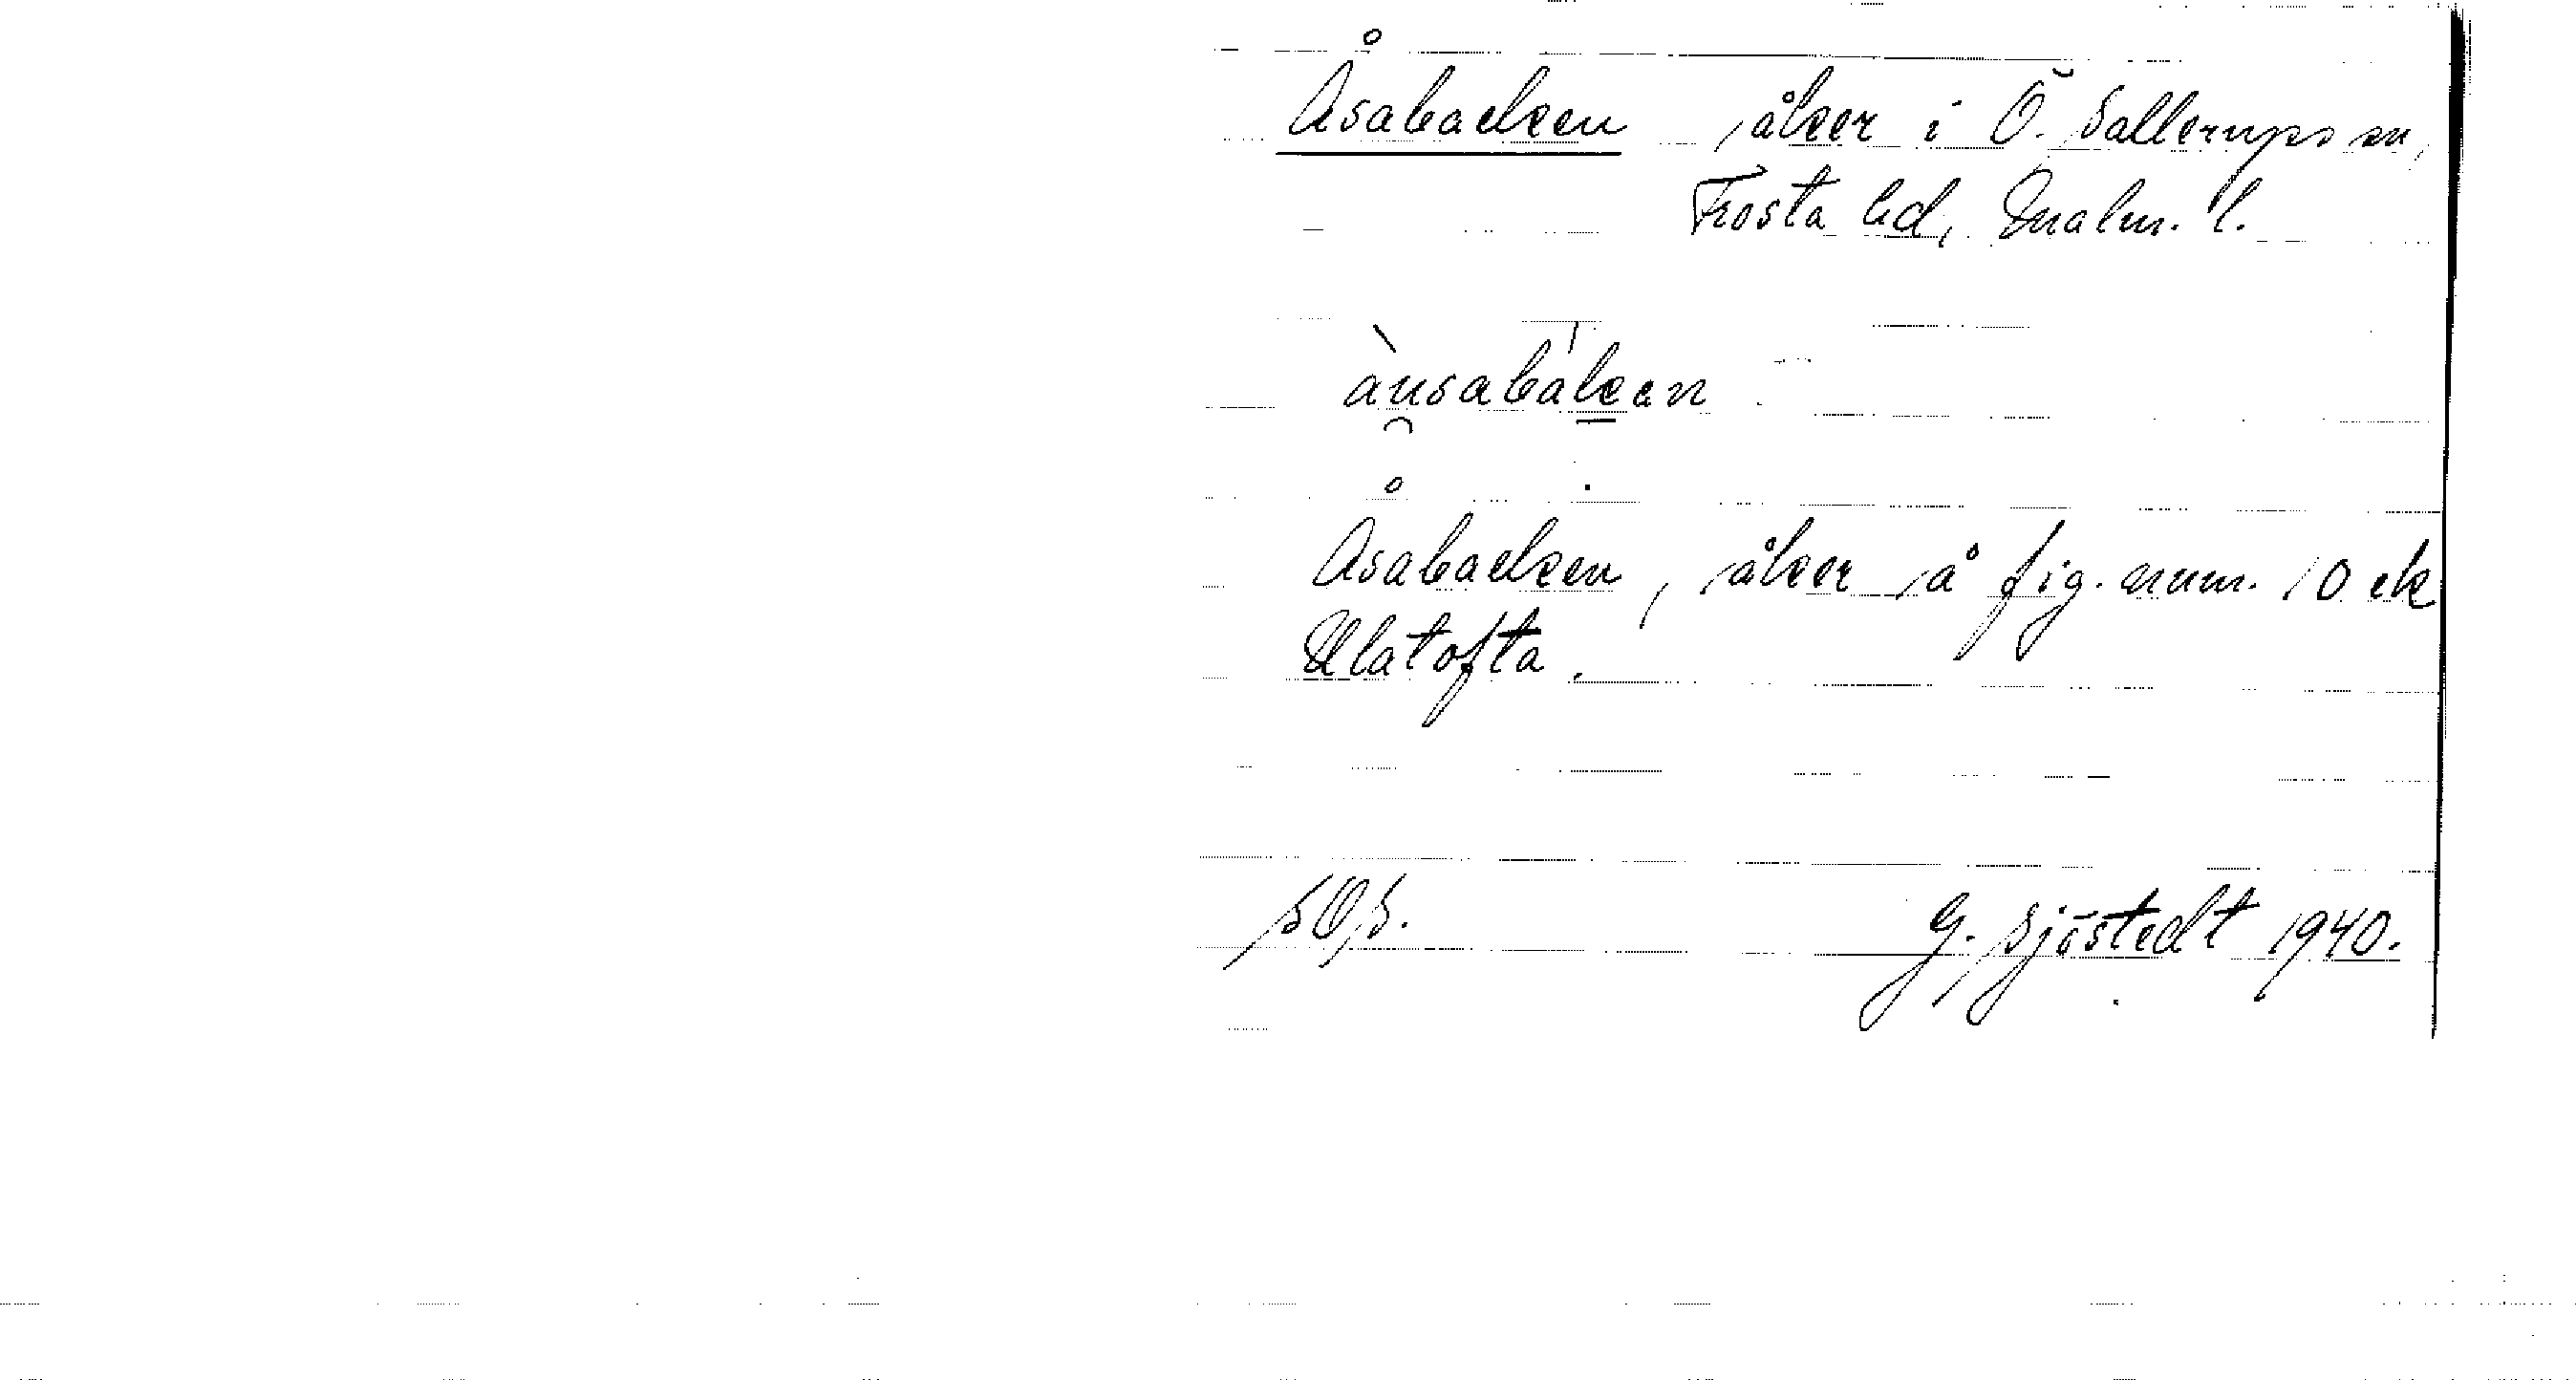 Åsabacken, åker i Ö. Sallerups sn,
Frosta hd, Malm. l.
àusabákan
Åsabacken, åker å fig. num. 10 ek
Ulatofta.
SOS.
G. Sjöstedt 1940.